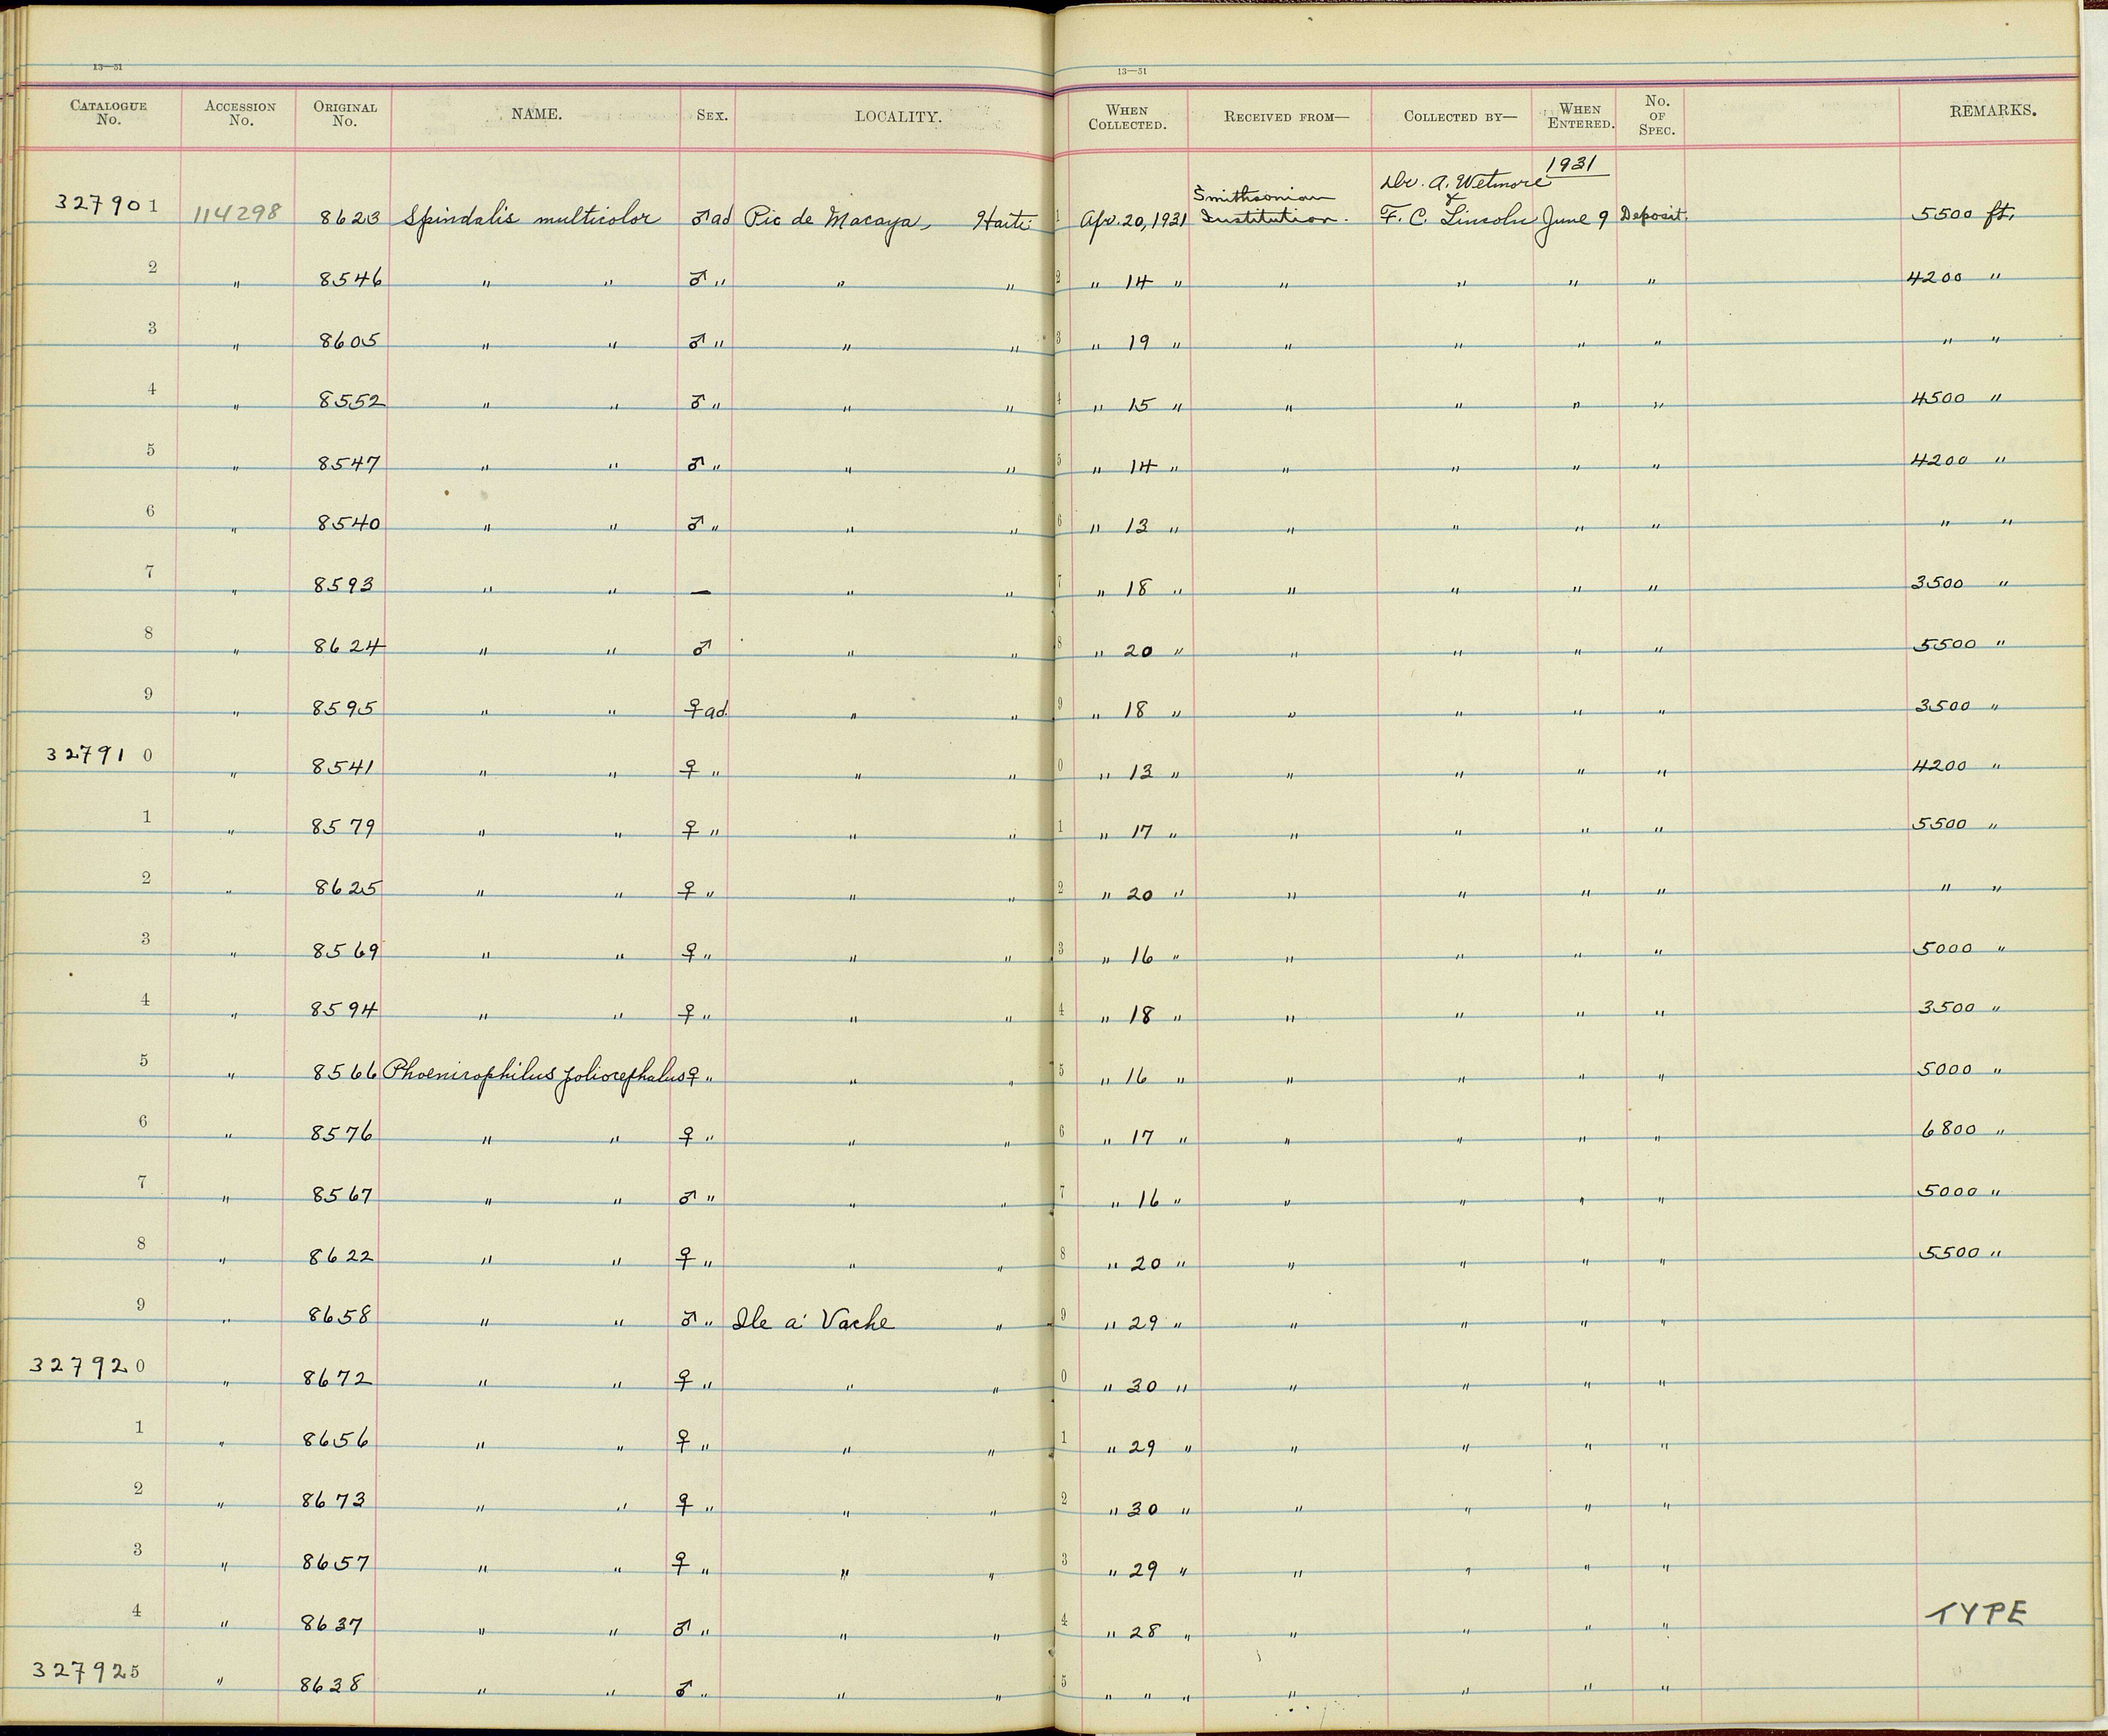 13—51 13—51
CATALOGUE No. ACCESSION No. ORIGINAL No. NAME. SEX. LOCALITY. WHEN COLLECTED. RECEIVED FROM— COLLECTED BY— WHEN ENTERED. No. OF SPEC. REMARKS.
1931
Smithsonian Dr. A. Wetmore &
327901 114298 8623 Spindalis multicolor ♂ad Pic de Macaya, Haiti 1 Apr. 20, 1931 Institution. F. C. Lincoln June 9 Deposit. 5500 ft.
2 " 8546 " " ♂ " " " 2 " 14 " " " " " 4200 "
3 " 8605 " " ♂ " " " 3 " 19 " " " " " " "
4 " 8552 " " ♂ " " " 4 " 15 " " " " " 4500 "
5 " 8547 " " ♂ " " " 5 " 14 " " " " " 4200 "
6 " 8540 " " ♂ " " " 6 " 13 " " " " " " "
7 " 8593 " " — " " 7 " 18 " " " " " 3500 "
8 " 8624 " " ♂ " " 8 " 20 " " " " " 5500 "
9 " 8595 " " ♀ad. " " 9 " 18 " " " " " 3500 "
327910 " 8541 " " ♀ " " " 0 " 13 " " " " " 4200 "
1 " 8579 " " ♀ " " " 1 " 17 " " " " " 5500 "
2 " 8625 " " ♀ " " " 2 " 20 " " " " " " "
3 " 8569 " " ♀ " " " 3 " 16 " " " " " 5000 "
4 " 8594 " " ♀ " " " 4 " 18 " " " " " 3500 "
5 " 8566 Phoenicophilus poliocephalus ♀ " " " 5 " 16 " " " " " 5000 "
6 " 8576 " " ♀ " " " 6 " 17 " " " " " 6800 "
7 " 8567 " " ♂ " " " 7 " 16 " " " " " 5000 "
8 " 8622 " " ♀ " " " 8 " 20 " " " " " 5500 "
9 " 8658 " " ♂ " Ile a' Vache " 9 " 29 " " " " "
327920 " 8672 " " ♀ " " " 0 " 30 " " " " "
1 " 8656 " " ♀ " " " 1 " 29 " " " " "
2 " 8673 " " ♀ " " " 2 " 30 " " " " "
3 " 8657 " " ♀ " " " 3 " 29 " " " " "
4 " 8637 " " ♂ " " " 4 " 28 " " " " " TYPE
327925 " 8638 " " ♂ " " " 5 " " " " " " "